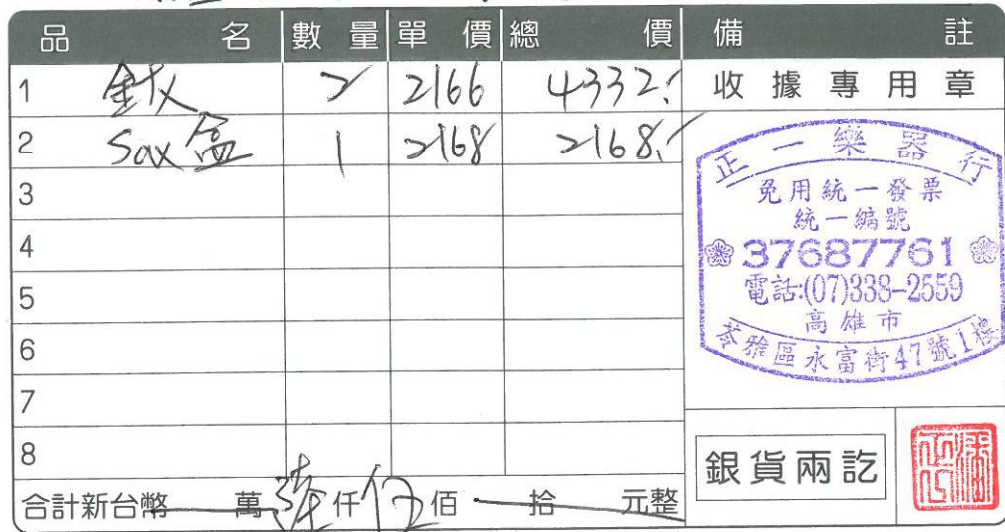 品名 數量 單價 總價 備註
1 鈸 2 2166 4332.
2 Sax盒 1 2168 2168.
3
4
5
6
7
8
合計新台幣 萬 陸仟伍佰 拾 元整
收據專用章
正一樂器行
免用統一發票
統一編號
37687761
電話:(07)338-2559
高雄市
苓雅區永富街47號1樓
銀貨兩訖